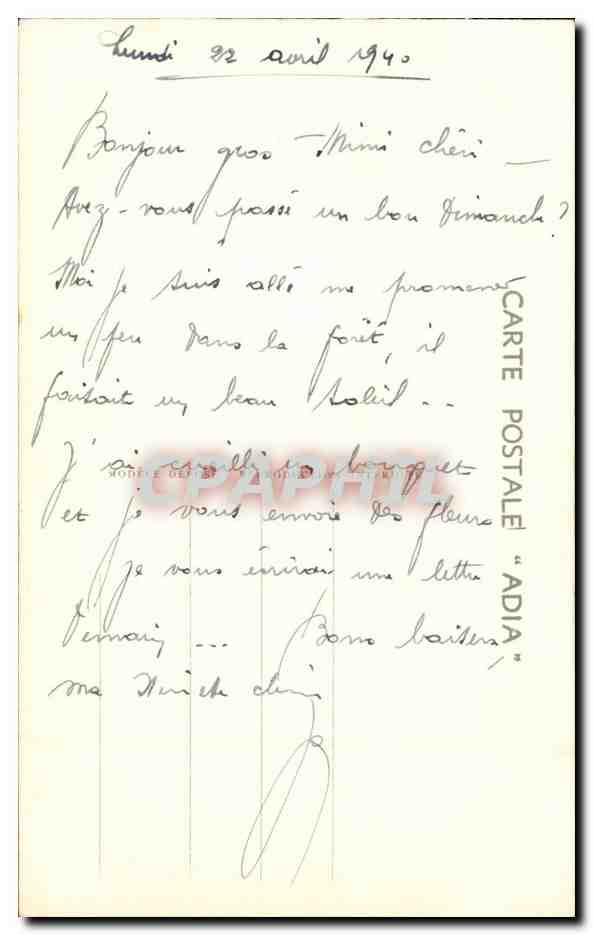 Lundi 22 avril 1940
Bonjour gros Mimi chéri —
Avez-vous passé un bon Dimanche?
Moi je suis allé me promener
un peu dans la forêt, il
faisait un beau soleil ...
J'ai cueilli un bouquet
et je vous envoie des fleurs
je vous écrirai une lettre
Demain ... Bons baisers,
ma chérie
CARTE POSTALE "ADIA"
MODÈLE DÉPOSÉ
CPAPHIL